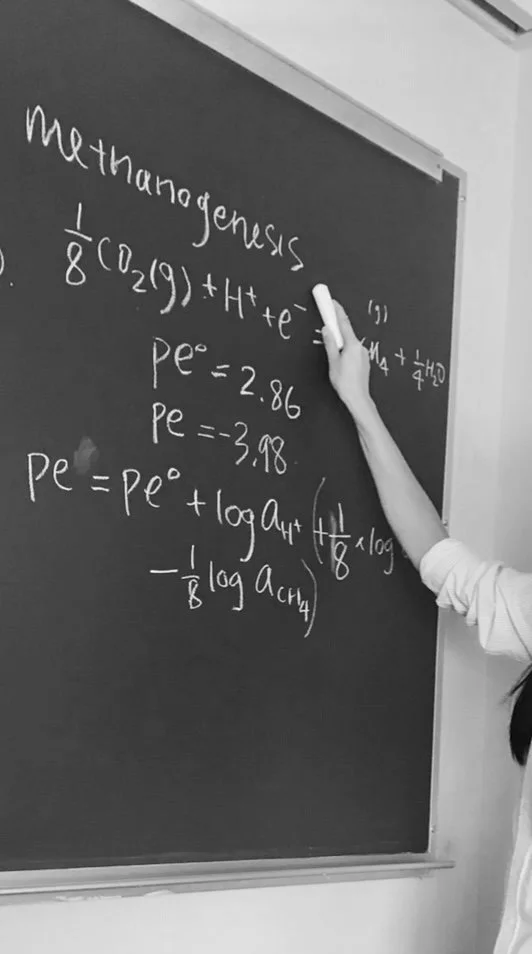 Methanogenesis
). 1/8 CO₂(g) + H⁺ + e⁻ = H₄ (g) + 1/4 H₂O
pe° = 2.86
pe = -3.98
pe = pe° + log a_H⁺ (+ 1/8 × log
- 1/8 log a_CH₄)